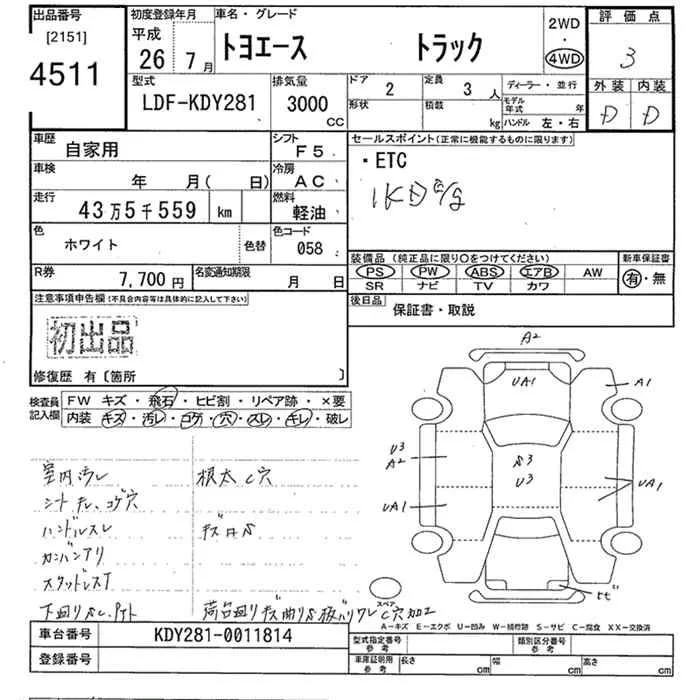 出品番号
[2151]
4511
初度登録年月
平成
26年 7月
車名・グレード
トヨエース トラック
2WD
・
4WD
評価点
3
外装 内装
D D
型式
LDF-KDY281
排気量
3000
CC
ドア
2
定員
3 人
形状
積載
kg
ディーラー・並行
モデル年式 年
ハンドル 左・右
車歴
自家用
シフト
F5
車検
年 月( 日)
冷房
AC
走行
43万5千559 km
燃料
軽油
色
ホワイト
色替
色コード
058
R券
7,700円
名変通知期限
月 日
セールスポイント(正常に機能するものに限ります)
・ETC
1KD
装備品 (純正品に限り○をつけてください)
PS PW ABS エアB AW
SR ナビ TV カワ
新車保証書
有・無
後日品
保証書・取説
注意事項申告欄(不具合内容等は具体的に記入して下さい)
初出品
修復歴 有〔箇所 〕
検査員記入欄
FW キズ・飛石・ヒビ割・リペア跡・×要
内装 キズ・汚レ・コゲ・穴・スレ・キレ・破レ
室内汚レ
根太C穴
シートキレ、コゲ穴
ハンドルスレ
カンバンアリ
スタッドレスT
A2
UA1
A1
U3
A2
S3
U3
UA1
UA1
スペア
A-キズ E-エクボ U-凹み W-補修跡 S-サビ C-腐食 XX-交換済
車台番号
KDY281-0011814
登録番号
型式指定番号
参考
類別区分番号
参考
車庫証明用
参考
長さ cm
幅 cm
高さ cm